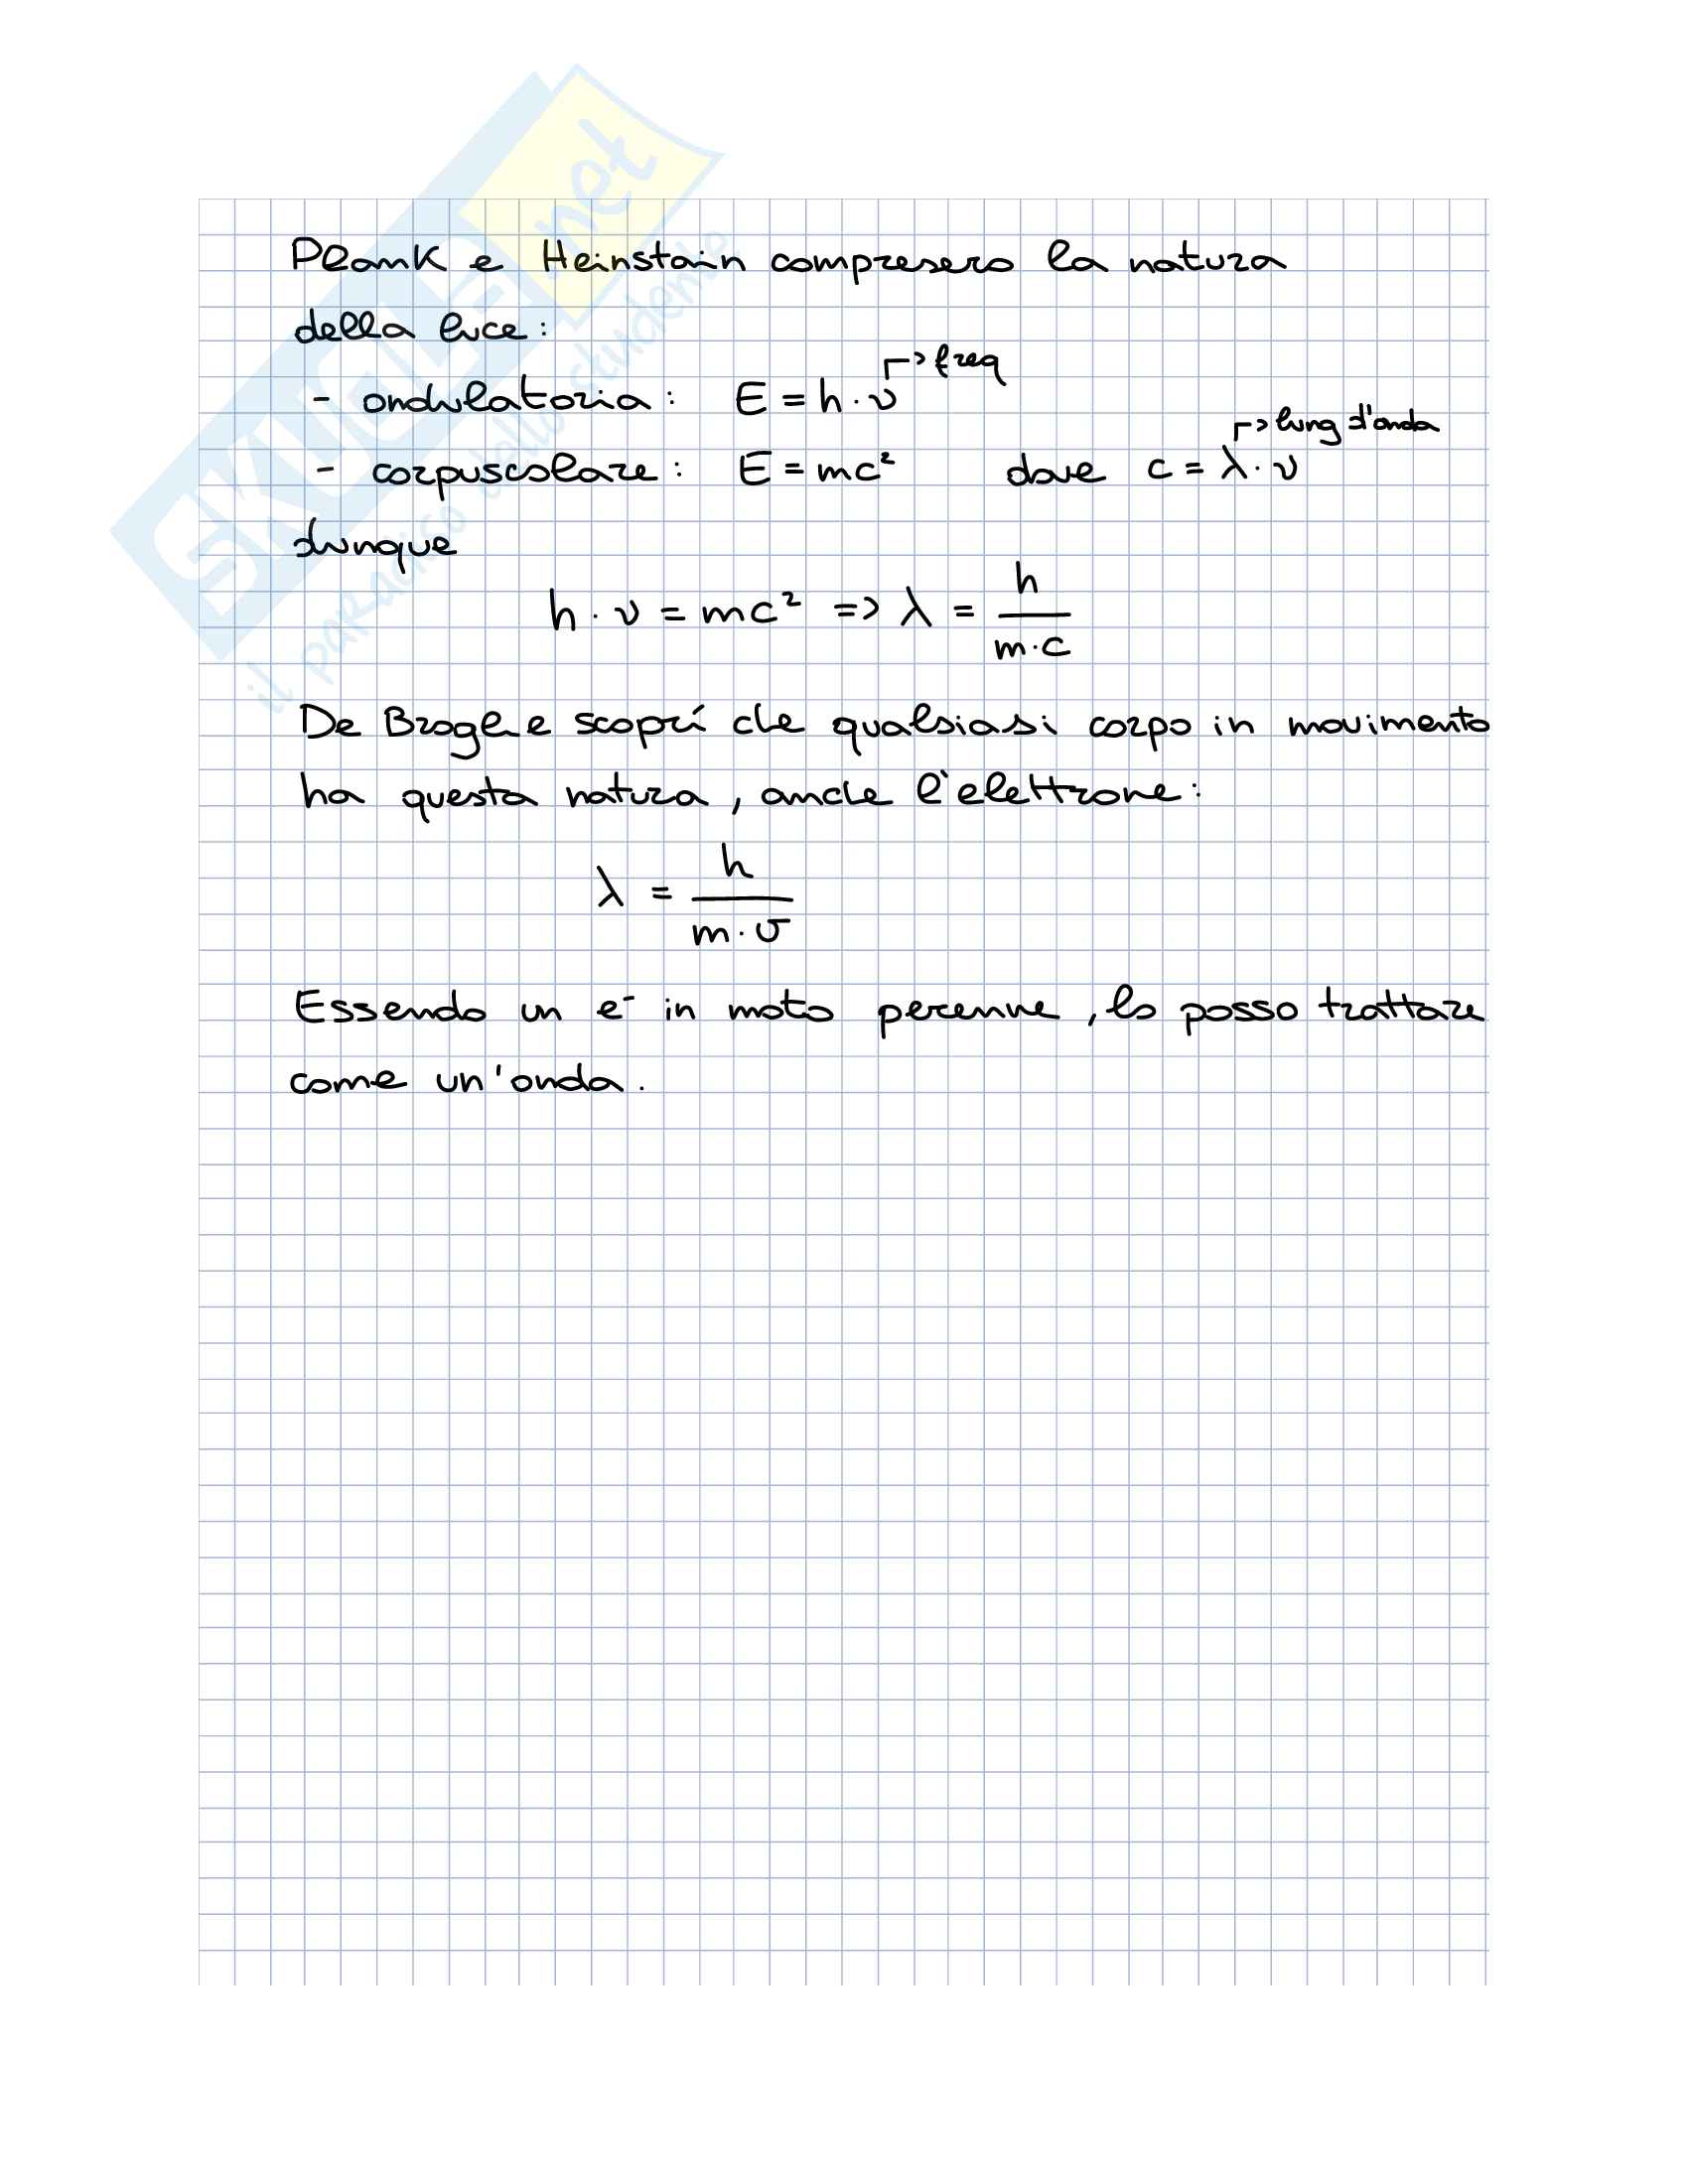 SKUOLA.net
il paradiso dello studente
Plank e Heinstain compresero la natura
della luce:
- ondulatoria: E = h · ν → freq
- corpuscolare: E = mc² dove c = λ · ν → lung d'onda
dunque
h · ν = mc² => λ = h / m · c
De Broglie scoprí che qualsiasi corpo in movimento
ha questa natura, anche l'elettrone:
λ = h / m · v
Essendo un e⁻ in moto perenne, lo posso trattare
come un'onda.